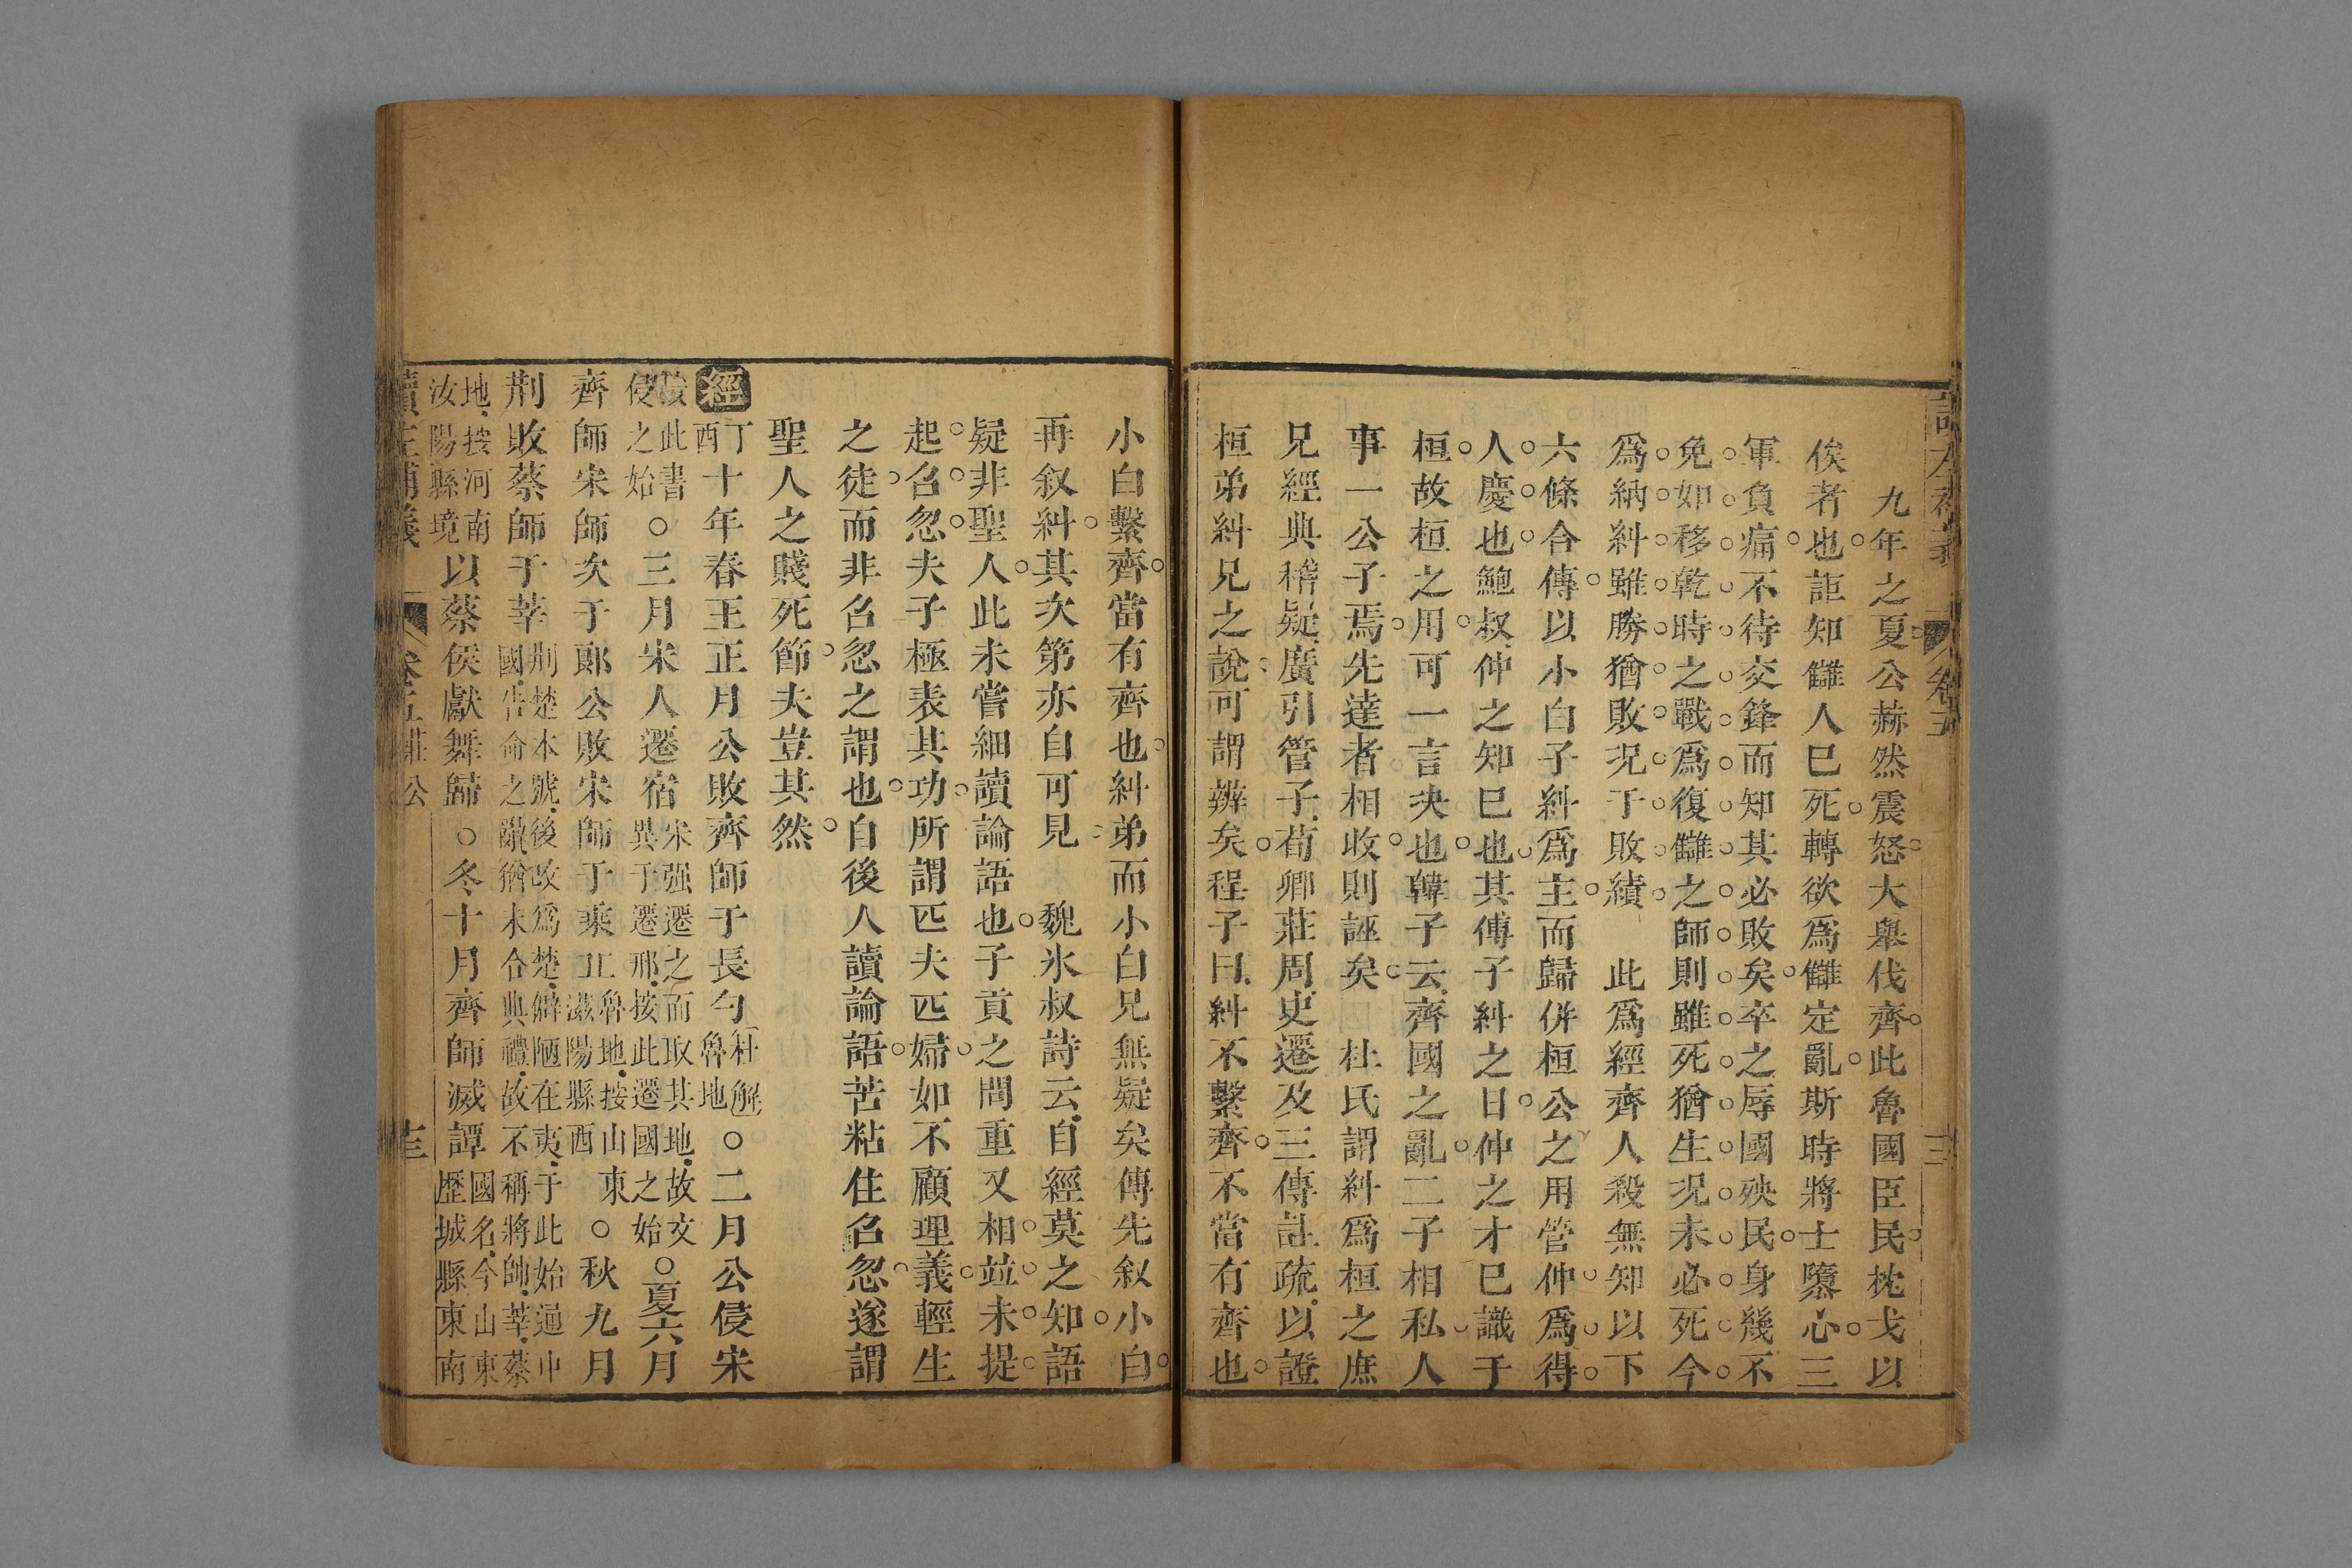 九年之夏公赫然震怒大舉伐齊此魯國臣民枕戈以
俟者也詎知讎人巳死轉欲爲讎定亂斯時將士隳心三
軍負痛不待交鋒而知其必敗矣卒之辱國殃民身幾不
免如移乾時之戰爲復讎之師則雖死猶生况未必死今
爲納糾雖勝猶敗况于敗績　此爲經齊人殺無知以下
六條合傳以小白子糾爲主而歸併桓公之用管仲爲得
人慶也鮑叔仲之知巳也其傳子糾之日仲之才巳識于
桓故桓之用可一言决也韓子云齊國之亂二子相私人
事一公子焉先達者相收則誣矣　杜氏謂糾爲桓之庶
兄經典稽疑廣引管子荀卿莊周史遷及三傳註疏以證
桓弟糾兄之說可謂辨矣程子曰糾不繫齊不當有齊也
小白繫齊當有齊也糾弟而小白兄無疑矣傳先叙小白
再叙糾其次第亦自可見　魏氷叔詩云自經莫之知語
疑非聖人此未嘗細讀論語也子貢之問重又相竝未提
起召忽夫子極表其功所謂匹夫匹婦如不顧理義輕生
之徒而非召忽之謂也自後人讀論語苦粘住召忽遂謂
聖人之賤死節夫豈其然
經丁酉十年春王正月公敗齊師于長勺杜解魯地○二月公侵宋
此書侵之始○三月宋人遷宿宋强遷之而取其地故文異于遷邢按此遷國之始○夏六月
齊師宋師次于郎公敗宋師于乘丘魯地按山東滋陽縣西○秋九月
荆敗蔡師于莘荆楚本號後改爲楚僻陋在夷于此始通中國告命之辭猶未合典禮故不稱將帥莘蔡
地按河南汝陽縣境以蔡侯獻舞歸○冬十月齊師滅譚國名今山東歷城縣東南
讀左補義　卷五莊公